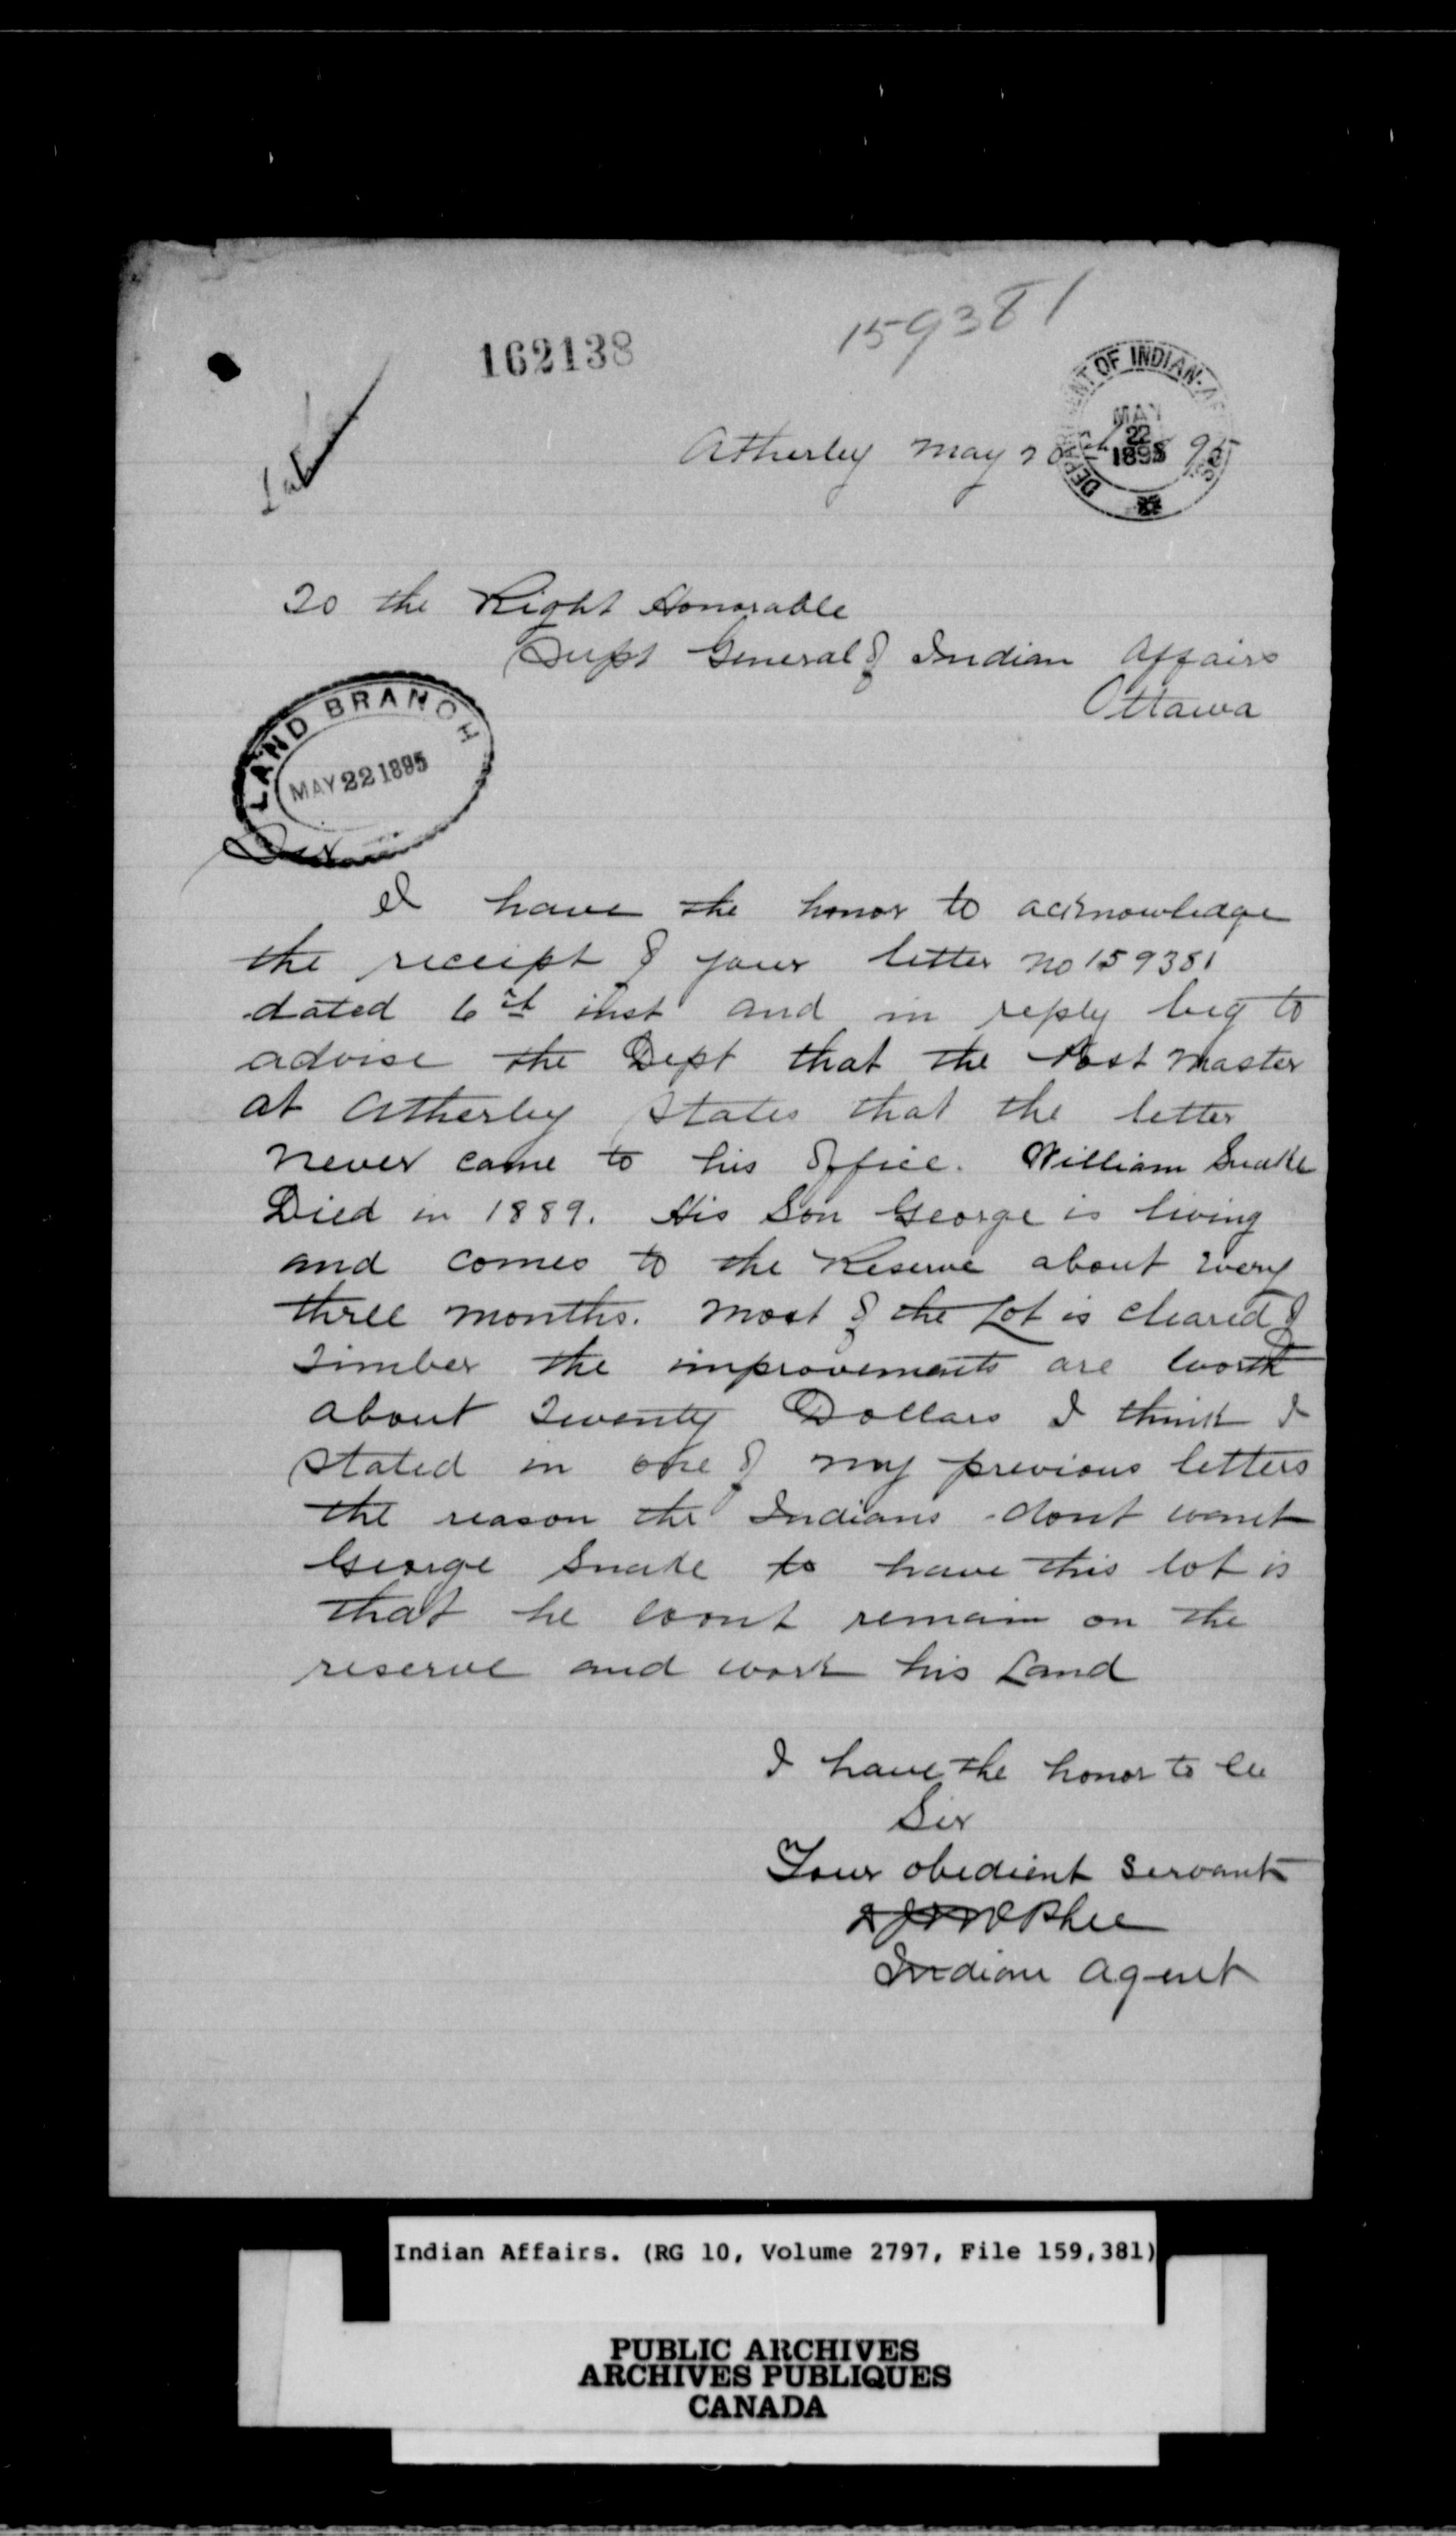 159381
162138
DEPARTMENT OF INDIAN AFFAIRS
MAY
22
1895
Atherley May 20th 95
To the Right Honorable
Supt General of Indian Affairs
Ottawa
LAND BRANCH
MAY 22 1895
Sir
I have the honor to acknowledge
the receipt of your letter no 159381
dated 6th inst and in reply beg to
advise the Dept that the Post Master
at Atherley states that the letter
never came to his office. William Snake
Died in 1889. His Son George is living
and comes to the Reserve about every
three months. Most of the Lot is cleared of
Timber the improvements are worth
about Twenty Dollars I think I
stated in one of my previous letters
the reason the Indians dont want
George Snake to have this lot is
that he wont remain on the
reserve and work his Land
I have the honor to be
Sir
Your obedient Servant
McPhee
Indian Agent
Indian Affairs. (RG 10, Volume 2797, File 159,381)
PUBLIC ARCHIVES
ARCHIVES PUBLIQUES
CANADA